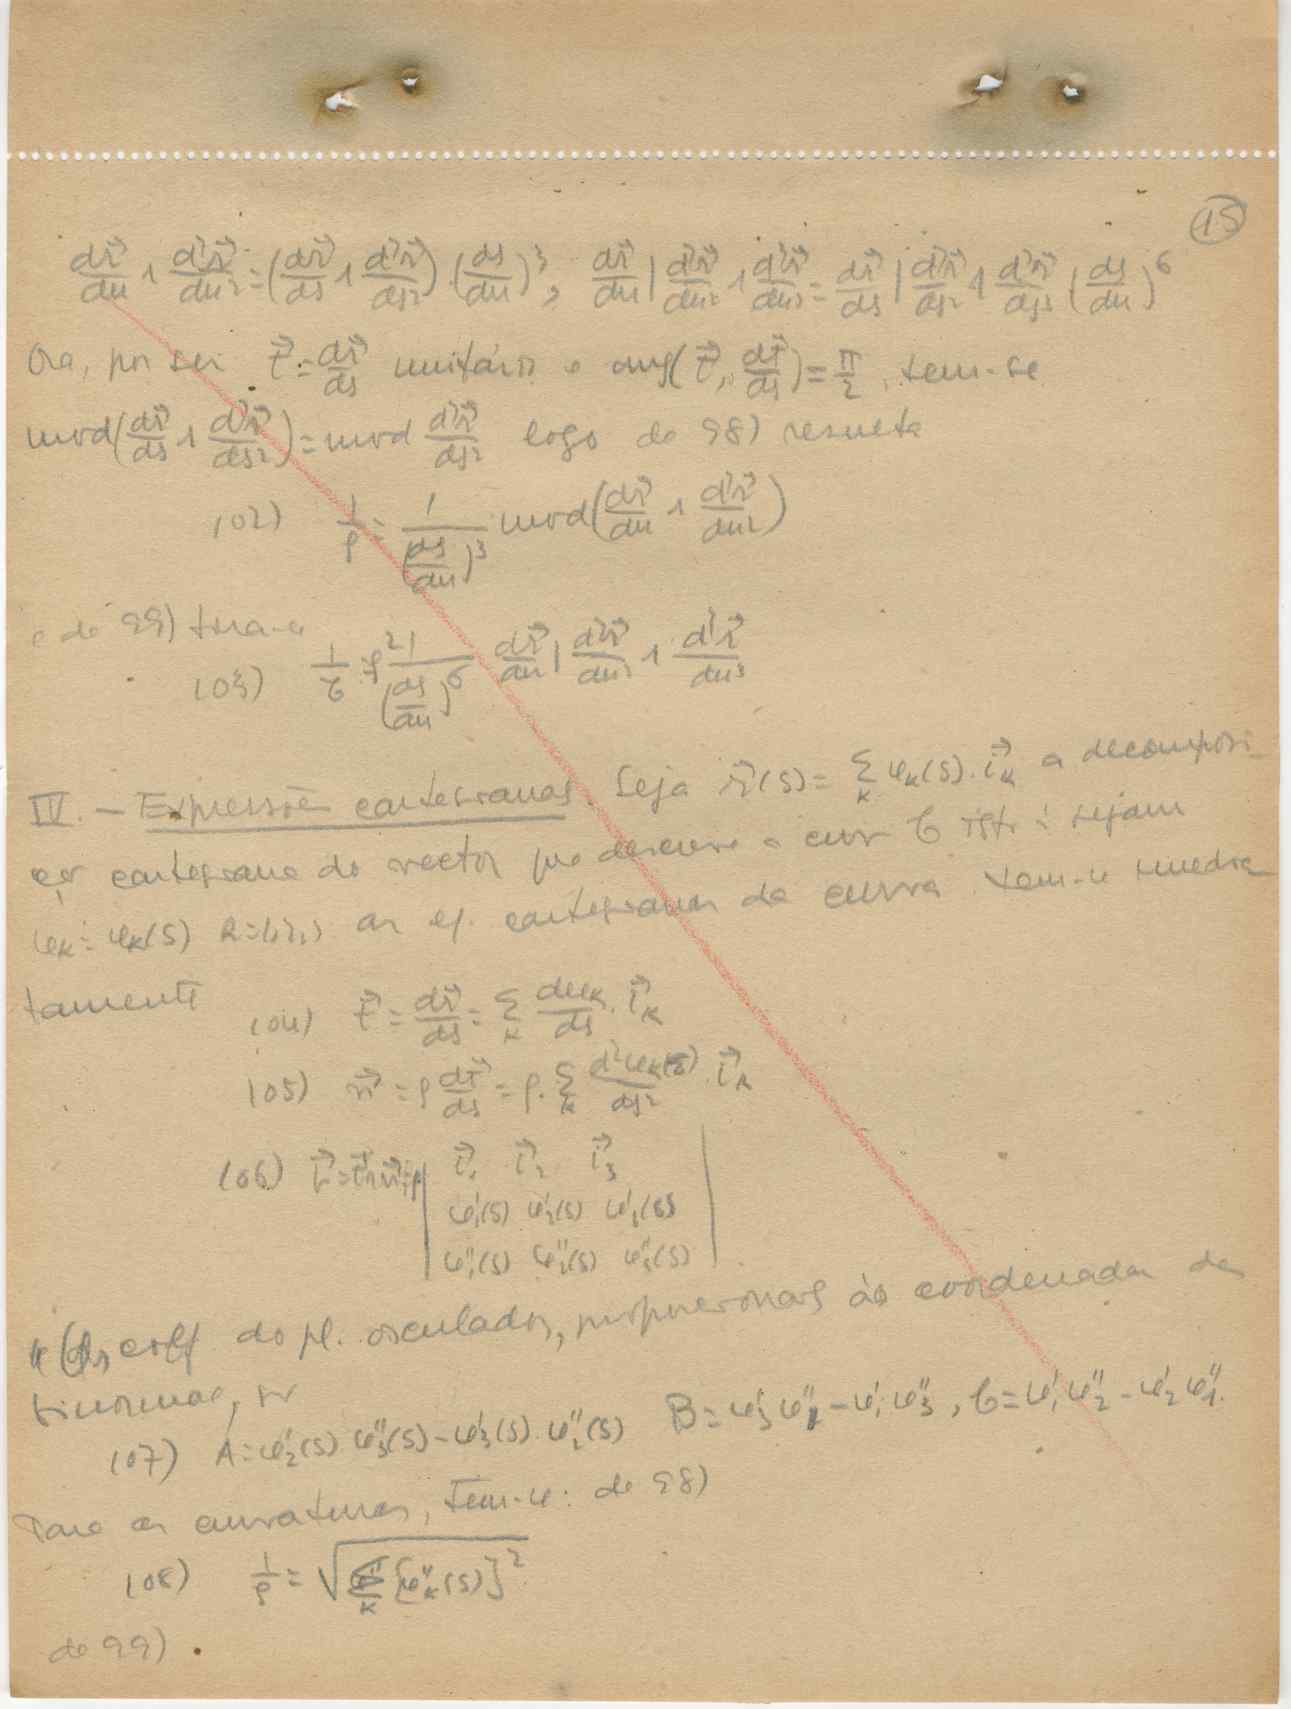 15
dr⃗/du ∧ d²r⃗/du² = (dr⃗/ds ∧ d²r⃗/ds²)·(ds/du)³, dr⃗/du | d²r⃗/du² ∧ d³r⃗/du³ = dr⃗/ds | d²r⃗/ds² ∧ d³r⃗/ds³ (ds/du)⁶
Ora, por ser t⃗ = dr⃗/ds unitário e ang(t⃗, dt⃗/ds) = π/2, tem-se
mod(dr⃗/ds ∧ d²r⃗/ds²) = mod d²r⃗/ds² logo de 98) resulta
102) 1/ρ = 1/(ds/du)³ mod(dr⃗/du ∧ d²r⃗/du²)
e de 99) tira-se
103) 1/τ = ρ² 1/(ds/du)⁶ dr⃗/du | d²r⃗/du² ∧ d³r⃗/du³
IV. - Expressões cartesianas. Seja r⃗(s) = Σ_k φ_k(s)·i⃗_k a decomposi-
ção cartesiana do vector que descreve a curv C isto é sejam
φ_k = φ_k(s) k=1,2,3 as eq. cartesianas da curva. Tem-se imedia-
tamente
104) t⃗ = dr⃗/ds = Σ_k dφ_k/ds · i⃗_k
105) n⃗ = ρ dt⃗/ds = ρ·Σ_k d²φ_k(s)/ds² · i⃗_k
106) b⃗ = t⃗∧n⃗ = ρ | i⃗₁ i⃗₂ i⃗₃ |
| φ'₁(s) φ'₂(s) φ'₃(s) |
| φ''₁(s) φ''₂(s) φ''₃(s) |
coeff. do pl. osculador, proporcionais às coordenadas da
binormal, são
107) A = φ'₂(s) φ''₃(s) - φ'₃(s)·φ''₂(s) B = φ'₃φ''₁ - φ'₁φ''₃, C = φ'₁φ''₂ - φ'₂φ''₁.
Para as curvaturas, tem-se: de 98)
108) 1/ρ = √(Σ_k [φ''_k(s)]²)
de 99)